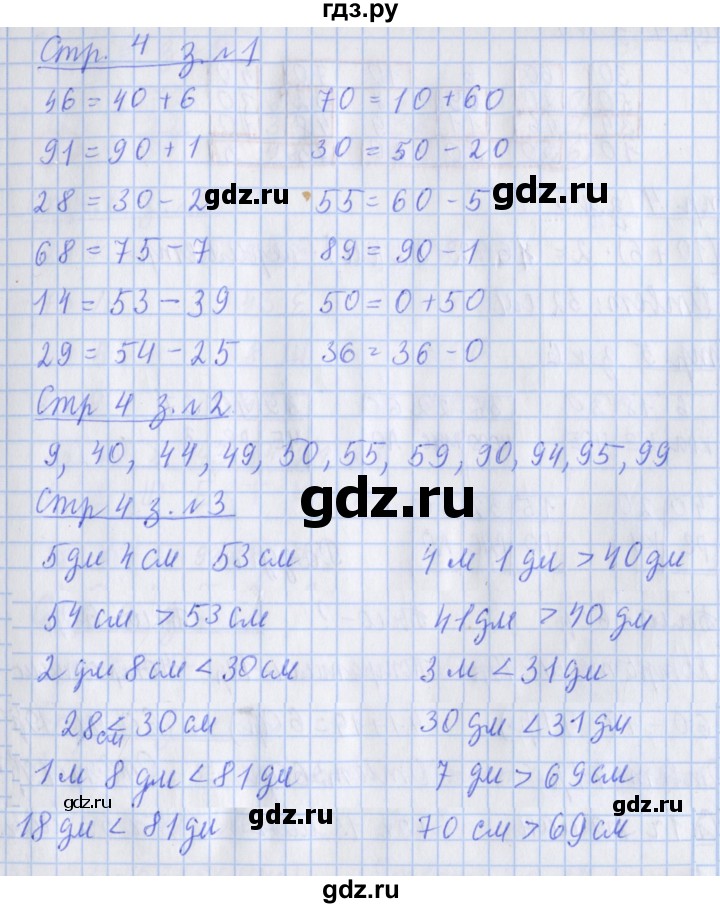 гдз.ру
Стр. 4 з. №1
46 = 40 + 6 70 = 10 + 60
91 = 90 + 1 30 = 50 - 20
28 = 30 - 2 gdz.ru 55 = 60 - 5 gdz.ru
68 = 75 - 7 89 = 90 - 1
14 = 53 - 39 50 = 0 + 50
29 = 54 - 25 36 = 36 - 0
Стр 4 з. №2
9, 40, 44, 49, 50, 55, 59, 90, 94, 95, 99
gdz.ru
Стр 4 з. №3
5 дм 4 см 53 см 4 м 1 дм > 40 дм
54 см > 53 см 41 дм > 40 дм
2 дм 8 см < 30 см 3 м < 31 дм
28 см < 30 см 30 дм < 31 дм
1 м 8 дм < 81 дм 7 дм > 69 см
gdz.ru gdz.ru gdz.ru
18 дм < 81 дм 70 см > 69 см
gdz.ru